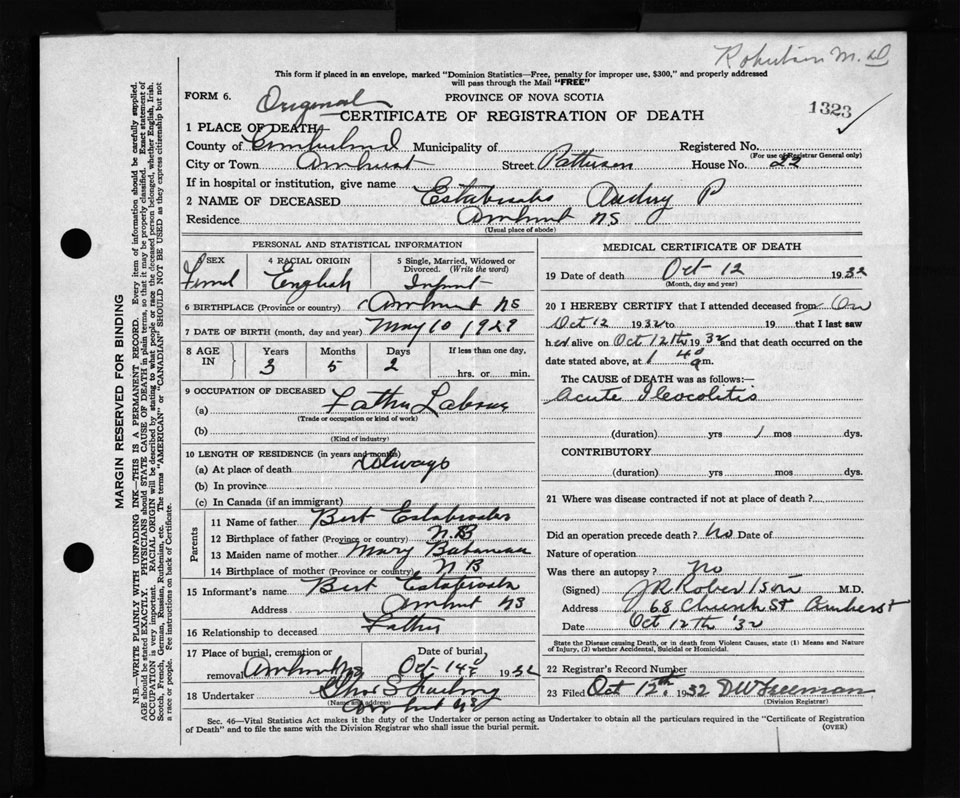 Robertson M.D
This form if placed in an envelope, marked "Dominion Statistics—Free, penalty for improper use, $300," and properly addressed
will pass through the Mail "FREE"
FORM 6.
Original
PROVINCE OF NOVA SCOTIA
1323
CERTIFICATE OF REGISTRATION OF DEATH
1 PLACE OF DEATH
County of Cumberland Municipality of Registered No.
(For use of Registrar General only)
City or Town Amherst Street Patterson House No. 22
If in hospital or institution, give name
2 NAME OF DECEASED Estabrooks Audrey P
Residence Amherst NS
(Usual place of abode)
PERSONAL AND STATISTICAL INFORMATION
3 SEX 4 RACIAL ORIGIN 5 Single, Married, Widowed or Divorced. (Write the word)
Femal English Infant
6 BIRTHPLACE (Province or country) Amherst NS
7 DATE OF BIRTH (month, day and year) May 10 1929
8 AGE IN Years Months Days If less than one day,
3 5 2 hrs. or min.
9 OCCUPATION OF DECEASED
(a) Father Laborer
(Trade or occupation or kind of work)
(b)
(Kind of industry)
10 LENGTH OF RESIDENCE (in years and months)
(a) At place of death Always
(b) In province
(c) In Canada (if an immigrant)
Parents
11 Name of father Bert Estabrooks
12 Birthplace of father (Province or country) N.B
13 Maiden name of mother Mary
14 Birthplace of mother (Province or country) N B
15 Informant's name Bert Estabrooks
Address Amherst NS
16 Relationship to deceased Father
17 Place of burial, cremation or removal Date of burial,
Amherst NS Oct 14 1932
18 Undertaker
(Name and address)
Amherst NS
MEDICAL CERTIFICATE OF DEATH
19 Date of death Oct 12 1932
(Month, day and year)
20 I HEREBY CERTIFY that I attended deceased from On
Oct 12 1932 to 19 that I last saw
her alive on Oct 12th 1932 and that death occurred on the
date stated above, at 1 40 m.
The CAUSE of DEATH was as follows:—
Acute Ileocolitis
(duration) yrs 1 mos dys.
CONTRIBUTORY
(duration) yrs mos dys.
21 Where was disease contracted if not at place of death ?
Did an operation precede death ? No Date of
Nature of operation
Was there an autopsy ? No
(Signed) J R Robertson M.D.
Address 68 Church St Amherst
Date Oct 12th '32
State the Disease causing Death, or in death from Violent Causes, state (1) Means and Nature
of Injury, (2) whether Accidental, Suicidal or Homicidal.
22 Registrar's Record Number
23 Filed Oct 12th 1932 DW Freeman
(Division Registrar)
Sec. 46—Vital Statistics Act makes it the duty of the Undertaker or person acting as Undertaker to obtain all the particulars required in the "Certificate of Registration
of Death" and to file the same with the Division Registrar who shall issue the burial permit.
(OVER)
MARGIN RESERVED FOR BINDING
N.B.—WRITE PLAINLY WITH UNFADING INK—THIS IS A PERMANENT RECORD. Every item of information should be carefully supplied.
AGE should be stated EXACTLY. PHYSICIANS should STATE CAUSE OF DEATH in plain terms, so that it may be properly classified. Exact statement of
OCCUPATION is very important. RACIAL ORIGIN will be described by stating to what people or race the deceased person belonged, whether English, Irish,
Scotch, French, German, Russian, Ruthenian, etc. The terms "AMERICAN" or "CANADIAN" SHOULD NOT BE USED as they express citizenship but not
a race or people. See instructions on back of Certificate.